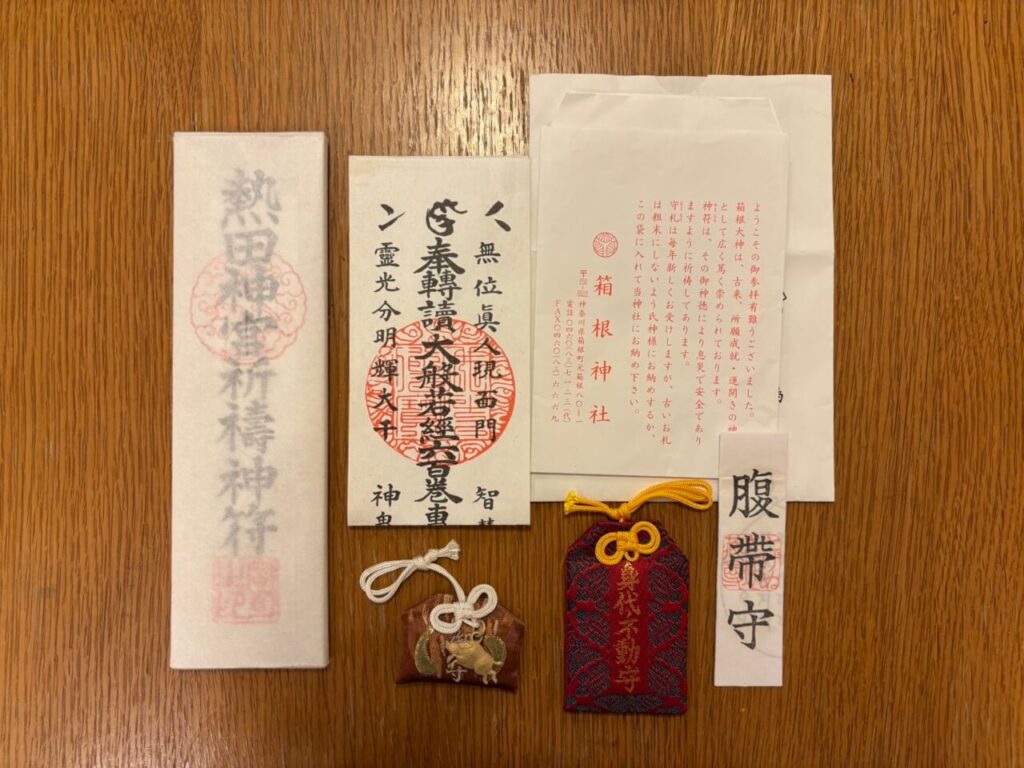 熱田神宮祈禱神符
無位眞人現面門 智
奉轉讀大般若經六百巻
靈光分明輝大千 神
ようこその御参拝有難うございました。
箱根大神は、古来、所願成就・運開きの神
として広く篤く崇められております。
神符は、その御神徳により息災で安全であり
ますように祈禱してあります。
守札は毎年新しくお受けしますが、古いお札
は粗末にしないよう氏神様にお納めするか、
この袋に入れて当神社にお納め下さい。
箱根神社
神奈川県箱根町元箱根八〇-一
電話〇四六〇(八三)七一二三(代)
FAX〇四六〇(八三)六六六九
守
身代不動守
腹帶守